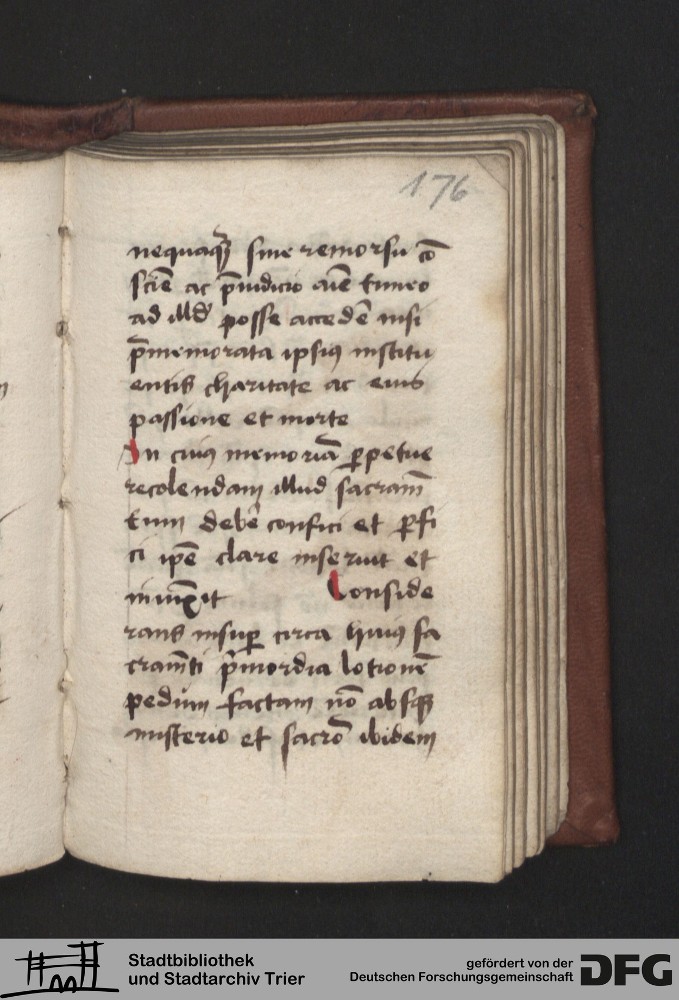 176
nequaqᷓ sine remorsu cō
sciē ac p̄iudicio aīe timeo
ad illd̓ posse accedē nisi
p̄memorata ipsiꝰ institu
entis charitate ac eius
passione et morte
In cuiꝰ memoriā ꝑpetue
recolendam illud sacram̄
tum debē confici et ꝑfi
ci ip̄e clare inseruit et
iniūxit Conside
rans insuꝑ circa huiꝰ sa
cram̄ti p̄mordia lotionē
pedum factam nō absqꝫ
misterio et sacrō ibidem
Stadtbibliothek
und Stadtarchiv Trier
gefördert von der
Deutschen Forschungsgemeinschaft
DFG